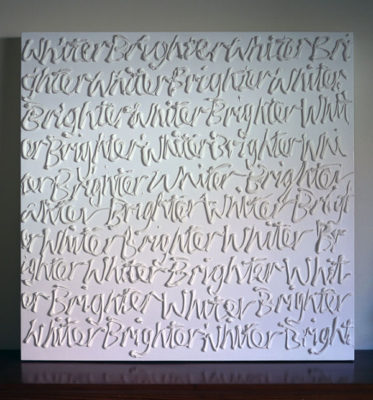 Whiter Brighter Whiter Bri
ghter Whiter Brighter Whiter
Brighter Whiter Brighter Whit
er Brighter Whiter Brighter Whi
ter Brighter Whiter Brighter
Whiter Brighter Whiter Brigh
ter Whiter Brighter Whiter Br
ighter Whiter Brighter Whit
er Brighter Whiter Brighter
Whiter Brighter Whiter Bright